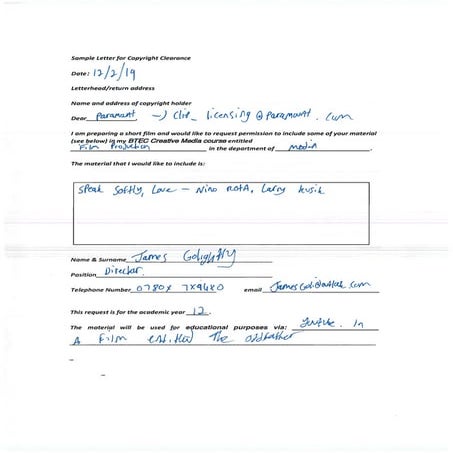 Sample Letter for Copyright Clearance
Date: 12/2/19
Letterhead/return address
Name and address of copyright holder
Dear Paramant → Clip_ licensing@paramount.com
I am preparing a short film and would like to request permission to include some of your material
(see below) in my BTEC Creative Media course entitled
Film Production in the department of Media
The material that I would like to include is:
Speak Softly, Love - Nino Rota, Larry Kusik
Name & Surname James Golightly
Position Director.
Telephone Number email
This request is for the academic year 12.
The material will be used for educational purposes via: Youtube. In
A Film entitled The Oddfather